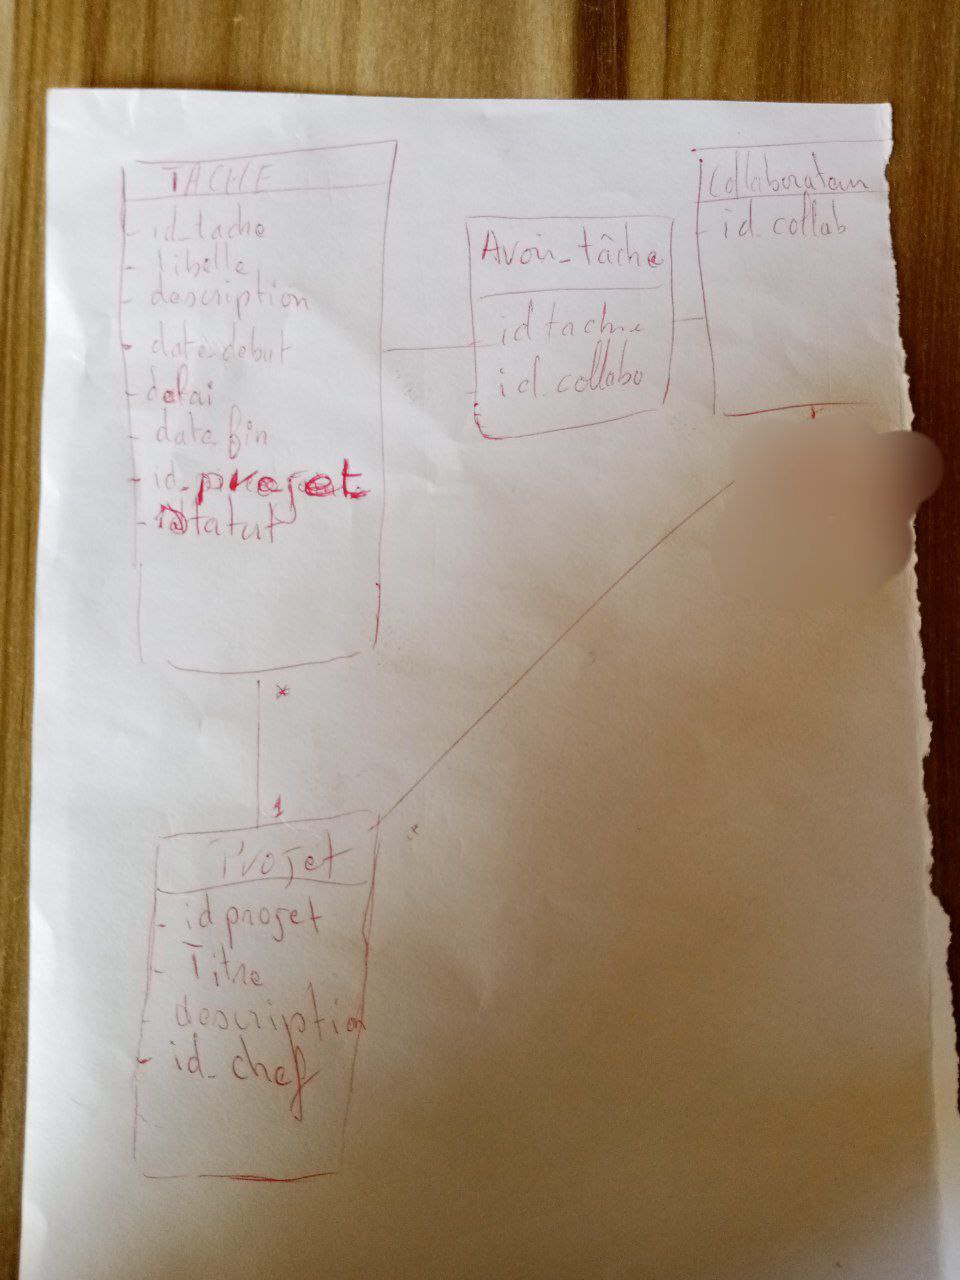 TACHE
- id_tache
- libelle
- description
- date debut
- delai
- date fin
- id_projet
- statut
*
Avoir_tâche
id tache
- id_collabo
Collaborateur
- id_collab
1
Projet
- id projet
- Titre
- description
- id_chef